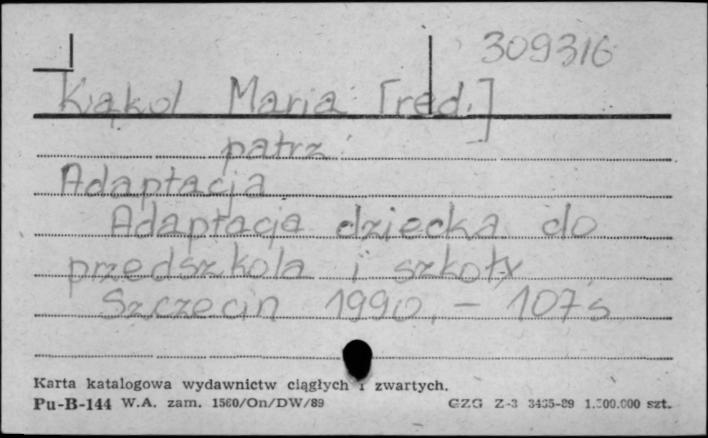 309316
Kąkol Maria [red.]
patrz:
Adaptacja
Adaptacja dziecka do
przedszkola i szkoły
Szczecin 1990. - 107 s
Karta katalogowa wydawnictw ciągłych i zwartych.
Pu-B-144 W.A. zam. 1560/On/DW/89 GZG Z-3 3435-89 1.500.000 szt.